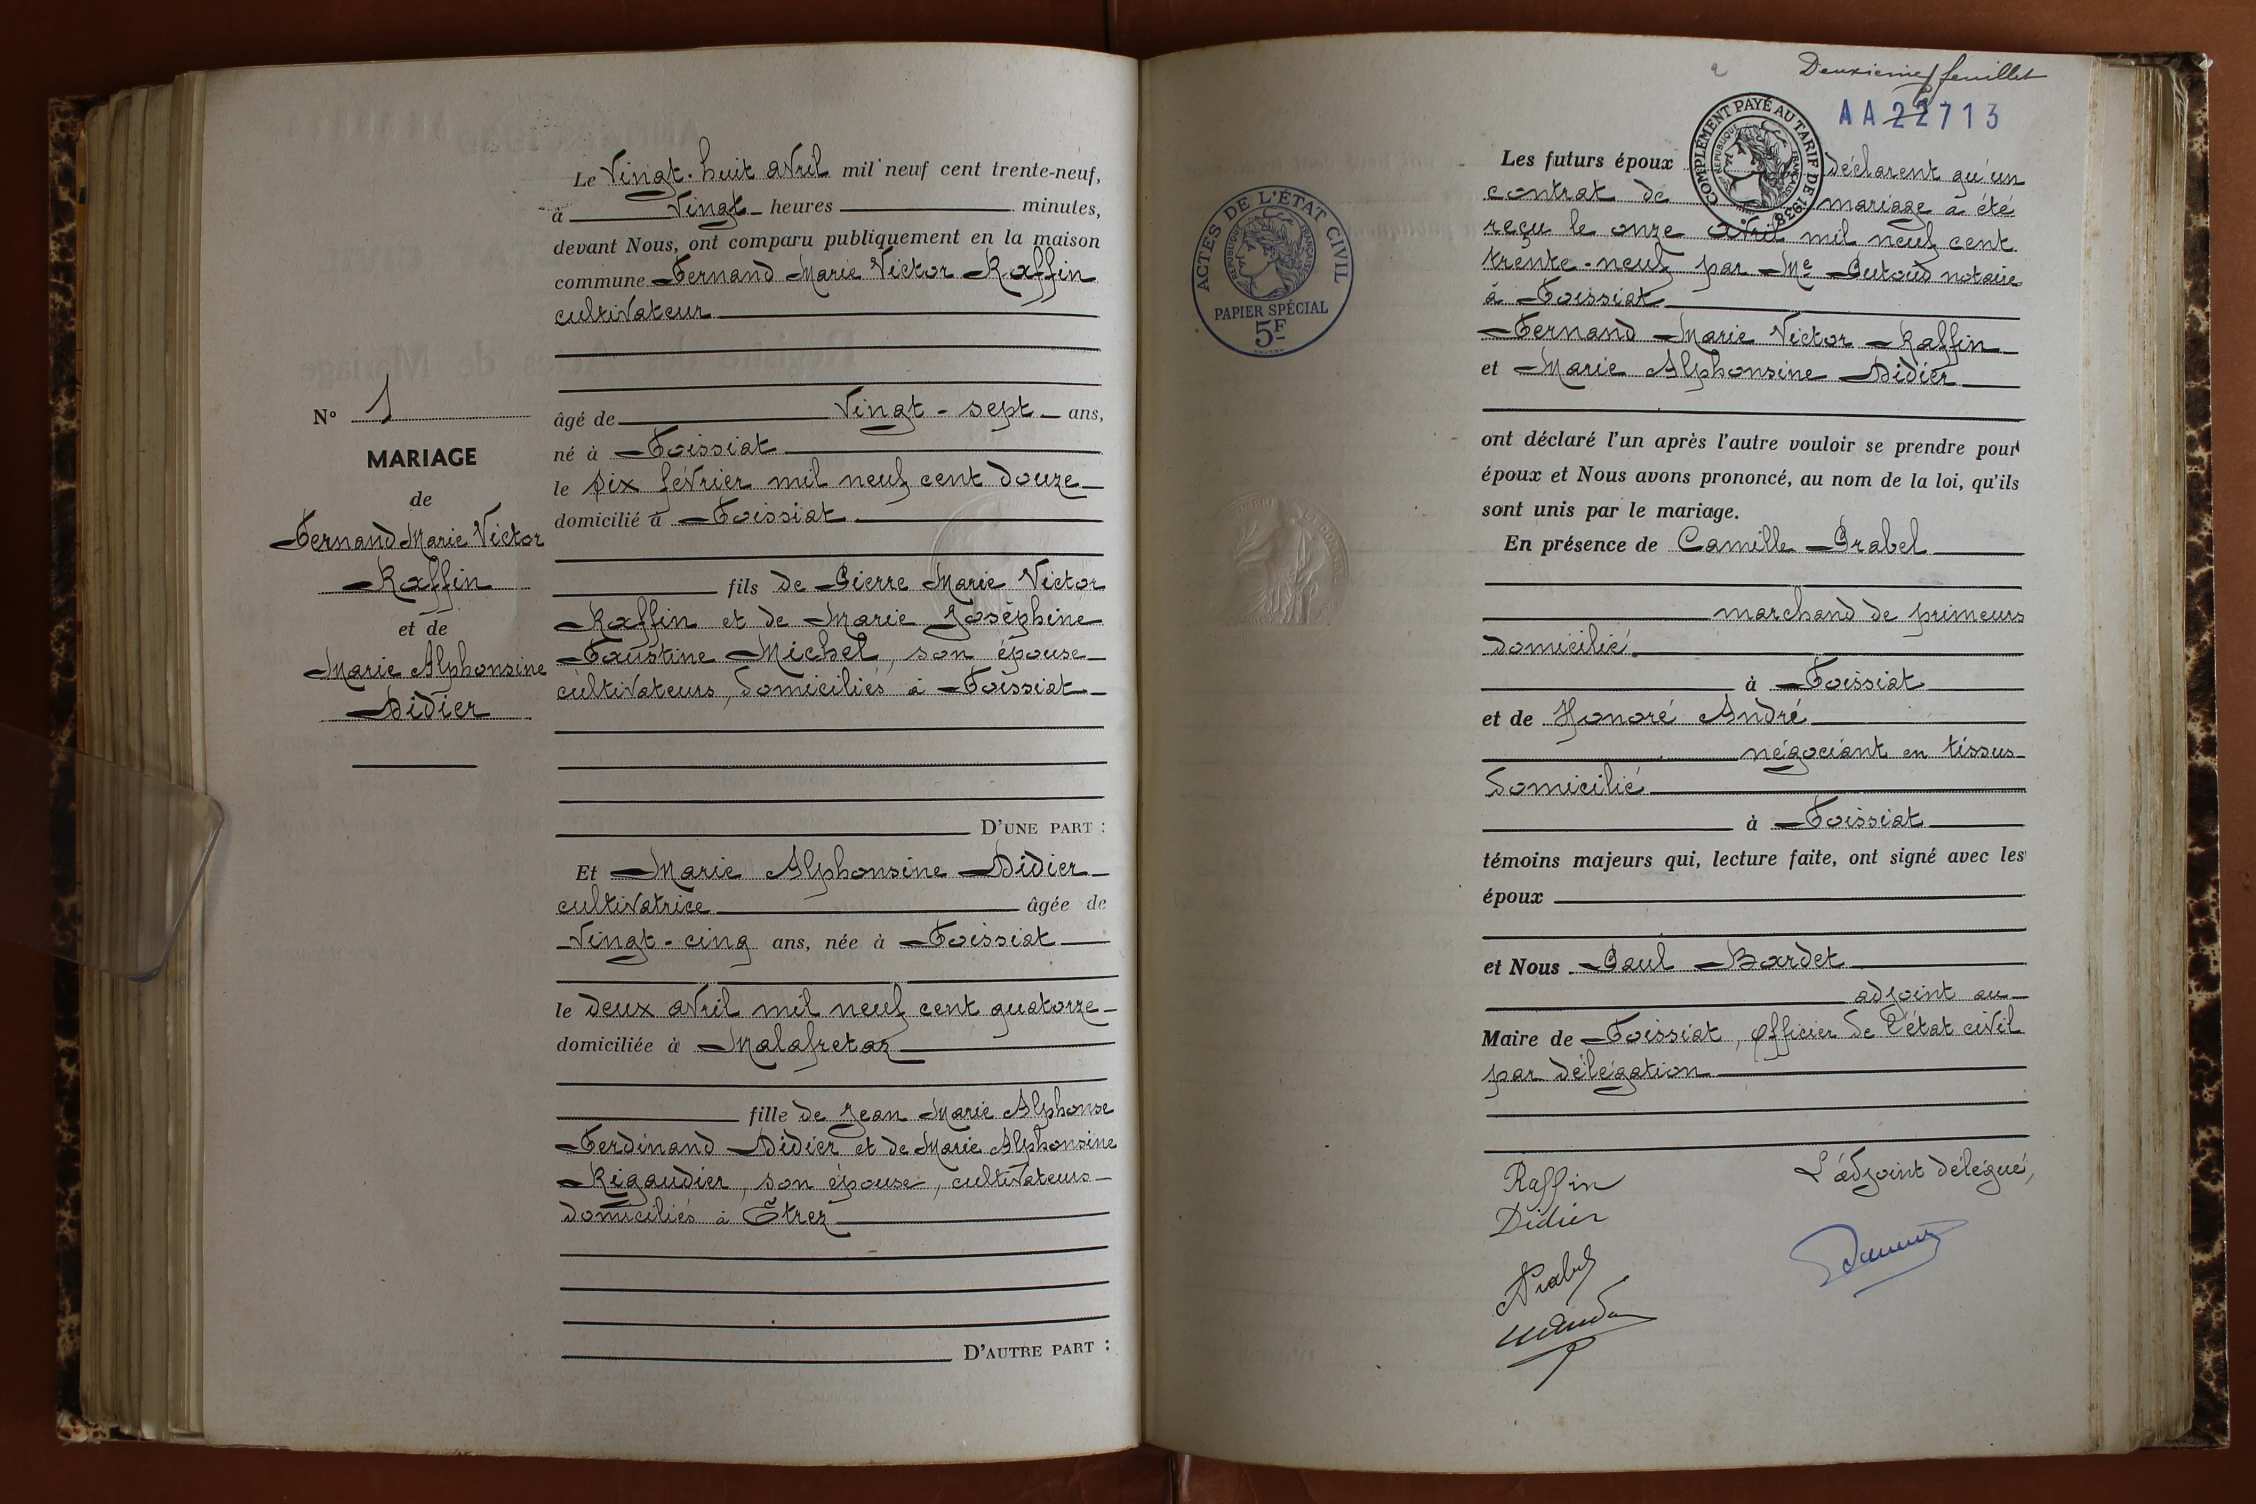 Le Vingt-huit avril mil neuf cent trente-neuf,
à Vingt heures minutes,
devant Nous, ont comparu publiquement en la maison
commune Fernand Marie Victor Raffin
cultivateur
âgé de Vingt-sept ans,
né à Foissiat
le six février mil neuf cent douze
domicilié à Foissiat
fils de Pierre Marie Victor
Raffin et de Marie Joséphine
Faustine Michel, son épouse
cultivateurs, domiciliés à Foissiat
D'UNE PART :
Et Marie Alphonsine Didier
cultivatrice âgée de
Vingt-cinq ans, née à Foissiat
le deux avril mil neuf cent quatorze
domiciliée à Malafretaz
fille de Jean Marie Alphonse
Ferdinand Didier et de Marie Alphonsine
Rigaudier, son épouse, cultivateurs
domiciliés à Étrez
D'AUTRE PART :
N° 1
MARIAGE
de
Fernand Marie Victor
Raffin
et de
Marie Alphonsine
Didier
Deuxième feuillet
AA 22713
COMPLÉMENT PAYÉ AU TARIF DE 1938
RÉPUBLIQUE FRANÇAISE
ACTES DE L'ÉTAT CIVIL
RÉPUBLIQUE FRANÇAISE
PAPIER SPÉCIAL
5F
Les futurs époux déclarent qu'un
contrat de mariage a été
reçu le onze avril mil neuf cent
trente-neuf par Me notaire
à Foissiat
Fernand Marie Victor Raffin
et Marie Alphonsine Didier
ont déclaré l'un après l'autre vouloir se prendre pour
époux et Nous avons prononcé, au nom de la loi, qu'ils
sont unis par le mariage.
En présence de Camille Prabel
marchand de primeurs
domicilié
à Foissiat
et de Honoré André
négociant en tissus
domicilié
à Foissiat
témoins majeurs qui, lecture faite, ont signé avec les
époux
et Nous Paul Bardet
adjoint au
Maire de Foissiat, officier de l'état civil
par délégation
Raffin
Didier
Prabel
L'adjoint délégué,